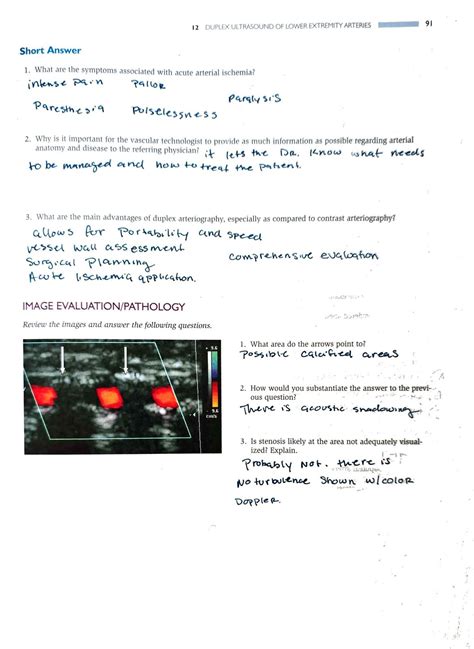 12 DUPLEX ULTRASOUND OF LOWER EXTREMITY ARTERIES 91
Short Answer
1. What are the symptoms associated with acute arterial ischemia?
intense Pain Pallor
Paralysis
Paresthesia Pulselessness
2. Why is it important for the vascular technologist to provide as much information as possible regarding arterial
anatomy and disease to the referring physician? it lets the Dr. Know what needs
to be managed and how to treat the Patient.
3. What are the main advantages of duplex arteriography, especially as compared to contrast arteriography?
allows for Portability and speed
vessel wall assessment
comprehensive evaluation
Surgical Planning
Acute Ischemia application.
IMAGE EVALUATION/PATHOLOGY
Review the images and answer the following questions.
1. What area do the arrows point to?
Possible calcified areas
2. How would you substantiate the answer to the previ-
ous question?
There is acoustic shadowing
3. Is stenosis likely at the area not adequately visual-
ized? Explain.
Probably Not. there is
No turbulence Shown w/color
Doppler.
9.6
- 9.6
cm/s